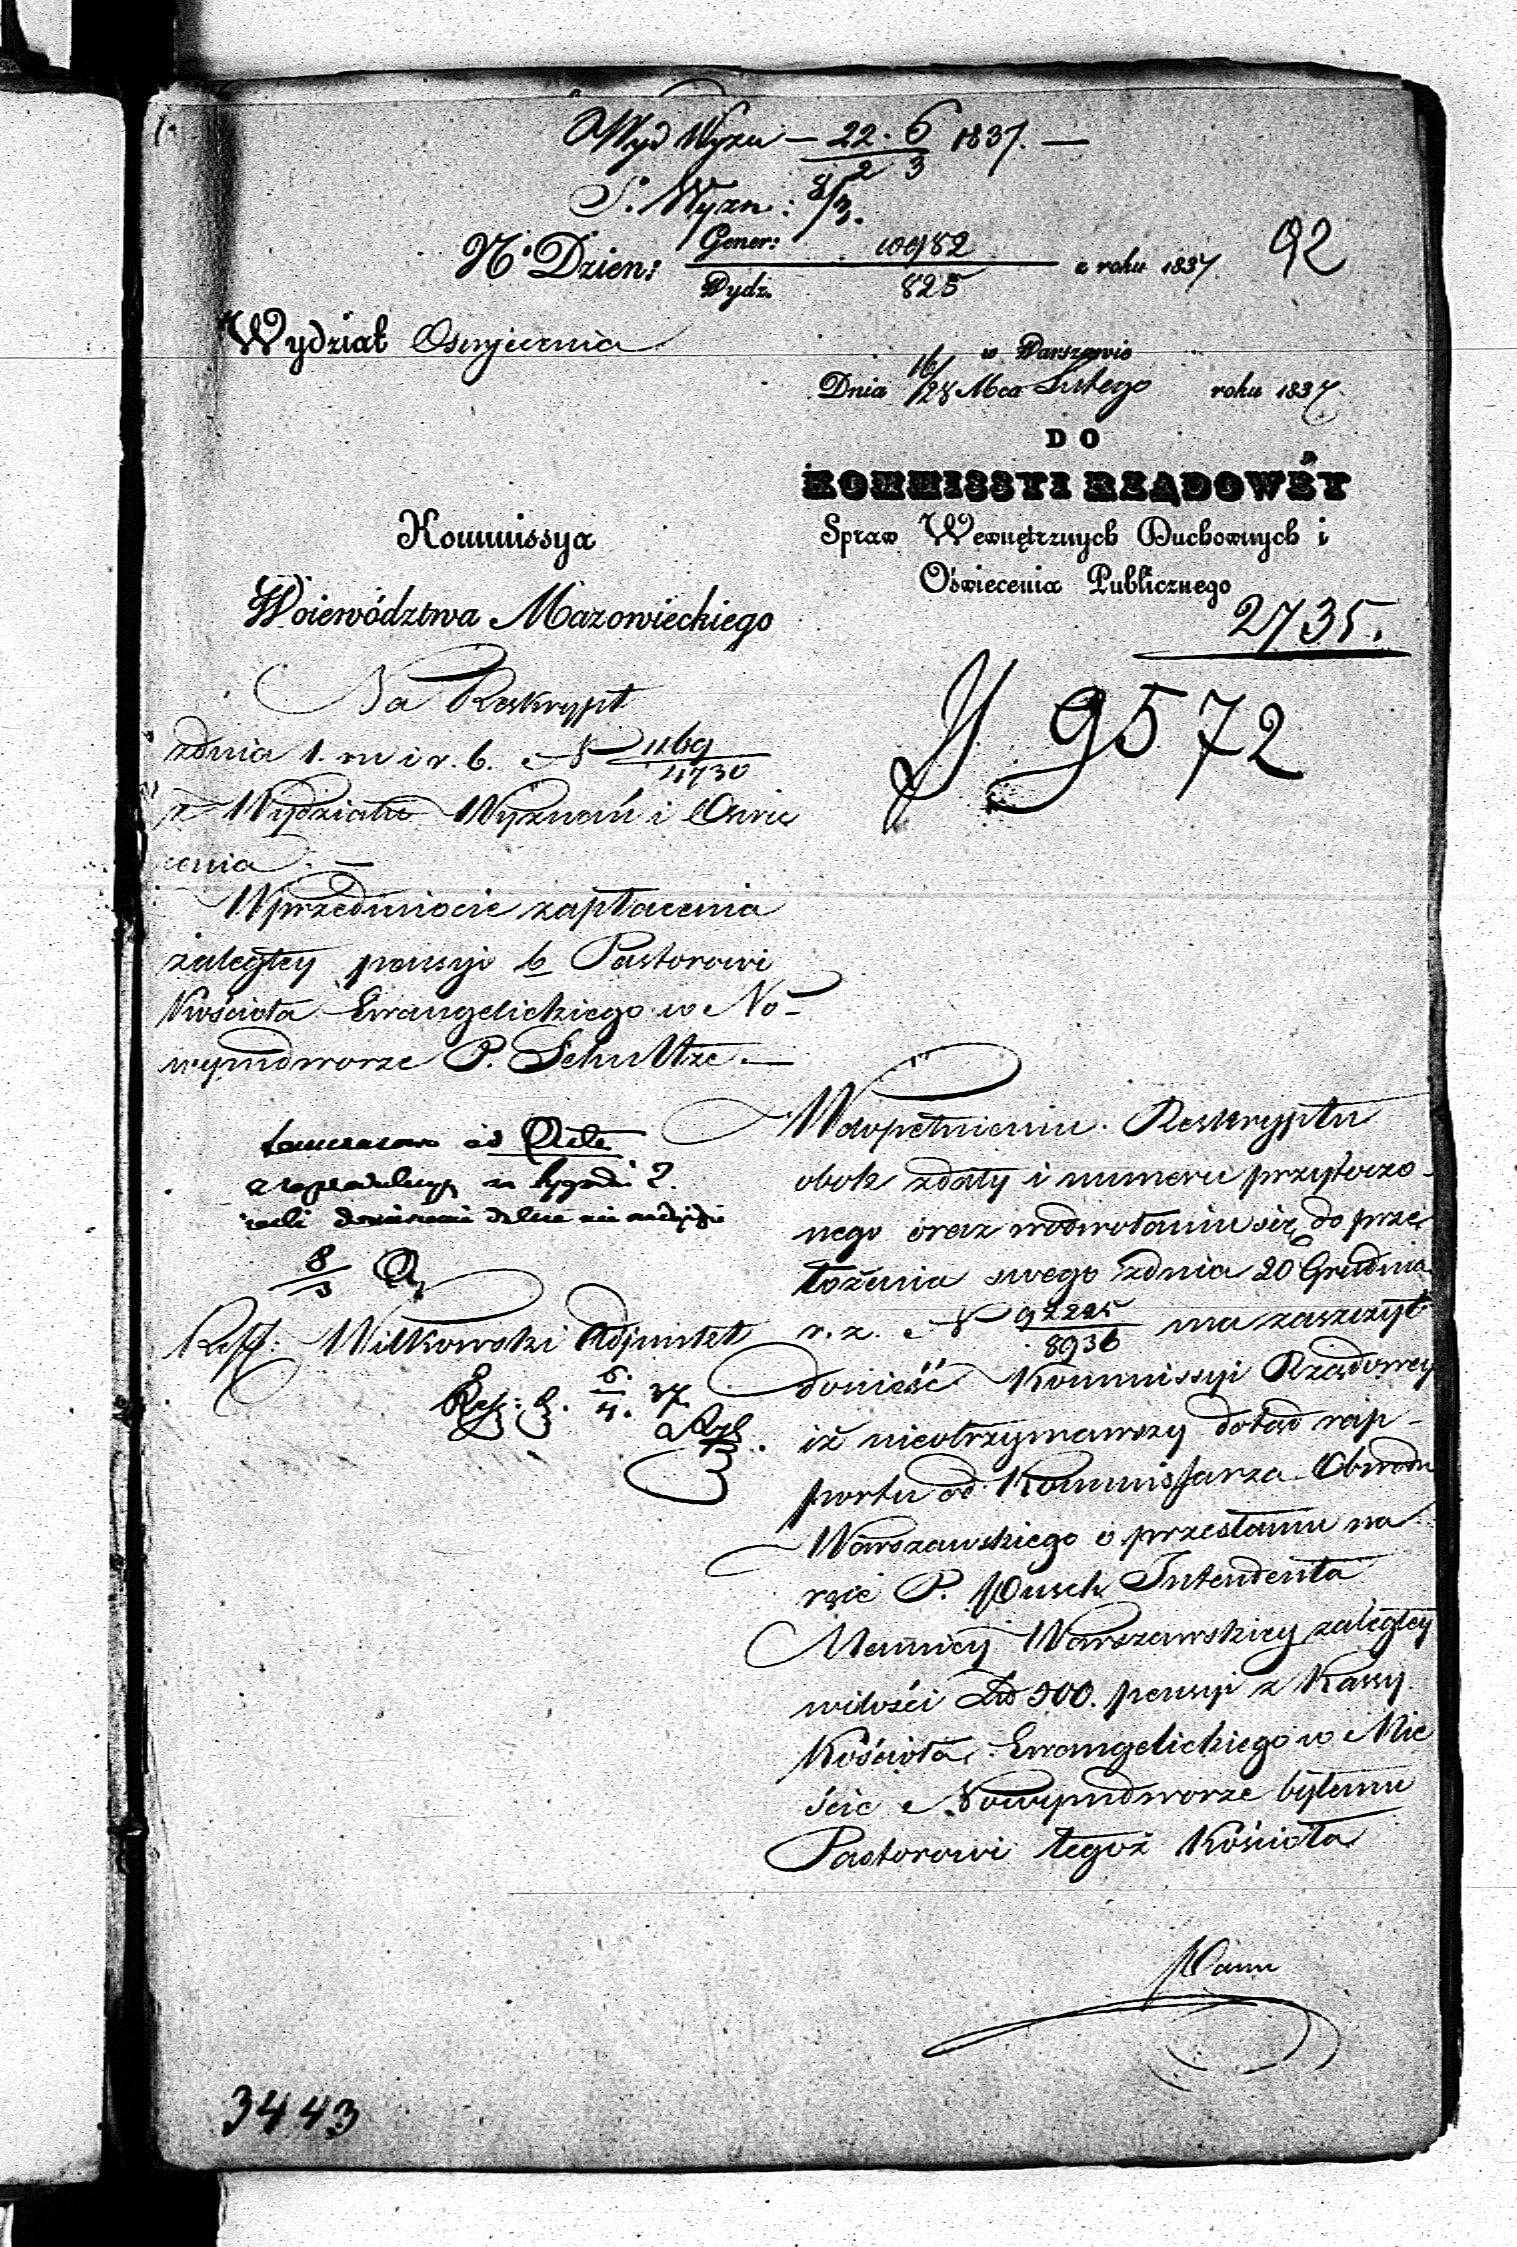 Wyd Wyzn — 22. 6 1837. —
2 3
S. Wyzn: 8/3.
N.o Dzien: Gener: 10982 z roku 1837.
Wydz. 825
92
Wydział Oswiecenia
w Warszawie
Dnia 16/28 Mca Lutego roku 1837.
DO
KOMMISSYI RZĄDOWÉY
Spraw Wewnętrznych Duchownych i
Oświecenia Publicznego
2735.
9572
Kommissya
Woiewództwa Mazowieckiego
Na Reskrypt
zdnia 1. m i r. b. N 1169/4730
z Wydziału Wyznań i Oswie
cenia. —
Wprzedmiocie zapłacenia
zaległey pensyi b Pastorowi
Kościoła Ewangelickiego w No-
wymdworze P. Schultze. —
8/3
Reff: Witkowski Adjunkt
6/4. 37
Wdopełnieniu Reskryptu
obok zdaty i numeru przytoczo-
nego oraz wodwołaniu się do prze
łożenia swego zdnia 20 Grudnia
r. z. N 92225/8936 ma zaszczyt
donieść Kommissyi Rządowey
iż nieotrzymawszy dotąd rap-
portu od Kommissarza Obwodu
Warszawskiego o przesłaniu na
ręce P. Pusch Intendenta
Mennicy Warszawskiey zaległey
wilości Zło 900. pensyi z Kassy
Kościoła Ewangelickiego w Mie
ście Nowymdworze byłemu
Pastorowi tegoż Kościoła
Panu
3443